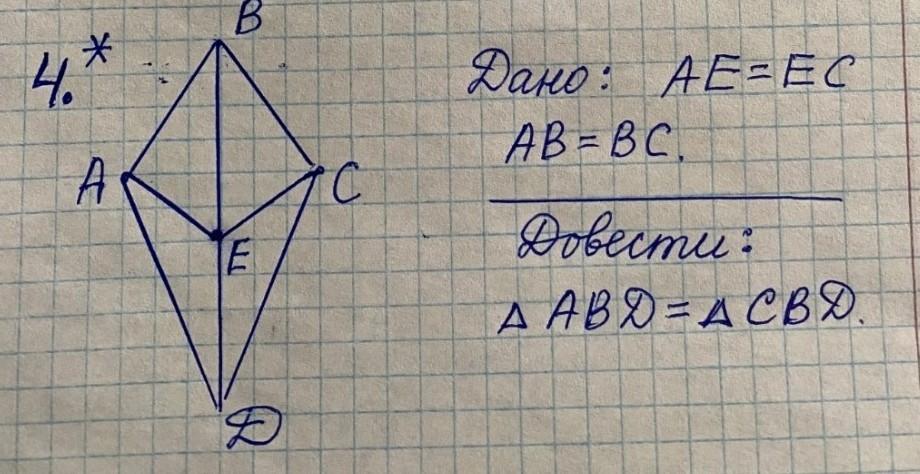 4.*
B
Дано: AE = EC
AB = BC.
A
C
E
Довести:
△ ABD = △ CBD.
D